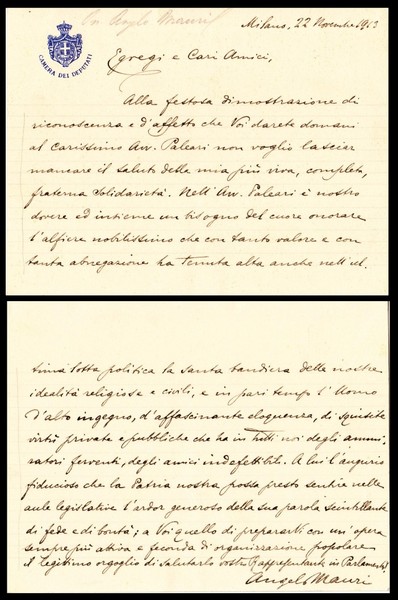 On Angelo Mauri
CAMERA DEI DEPUTATI
Milano, 22 Novembre 1913
Egregi e Cari Amici,
Alla festosa dimostrazione di
riconoscenza e d'affetto che Voi darete domani
al Carissimo Avv. Paleari non voglio lasciar
mancare il saluto della mia più viva, completa,
fraterna solidarietà. Nell'Avv. Paleari è nostro
dovere ed insieme un bisogno del cuore onorare
l'alfiere nobilissimo che con tanto valore e con
tanta abnegazione ha tenuta alta anche nell'ul-
tima lotta politica la santa bandiera delle nostre
idealità religiose e civili, e in pari tempo l'Uomo
d'alto ingegno, d'affascinante eloquenza, di squisite
virtù private e pubbliche che ha in tutti noi degli ammi-
ratori ferventi, degli amici indefettibili. A lui l'augurio
fiducioso che la Patria nostra possa presto sentire nelle
aule legislative l'ardor generoso della sua parola scintillante
di fede e di bontà; a Voi quello di prepararvi con un'opera
sempre più attiva e feconda di organizzazione popolare
il legittimo orgoglio di salutarlo vostro Rappresentante in Parlamento!
Angelo Mauri